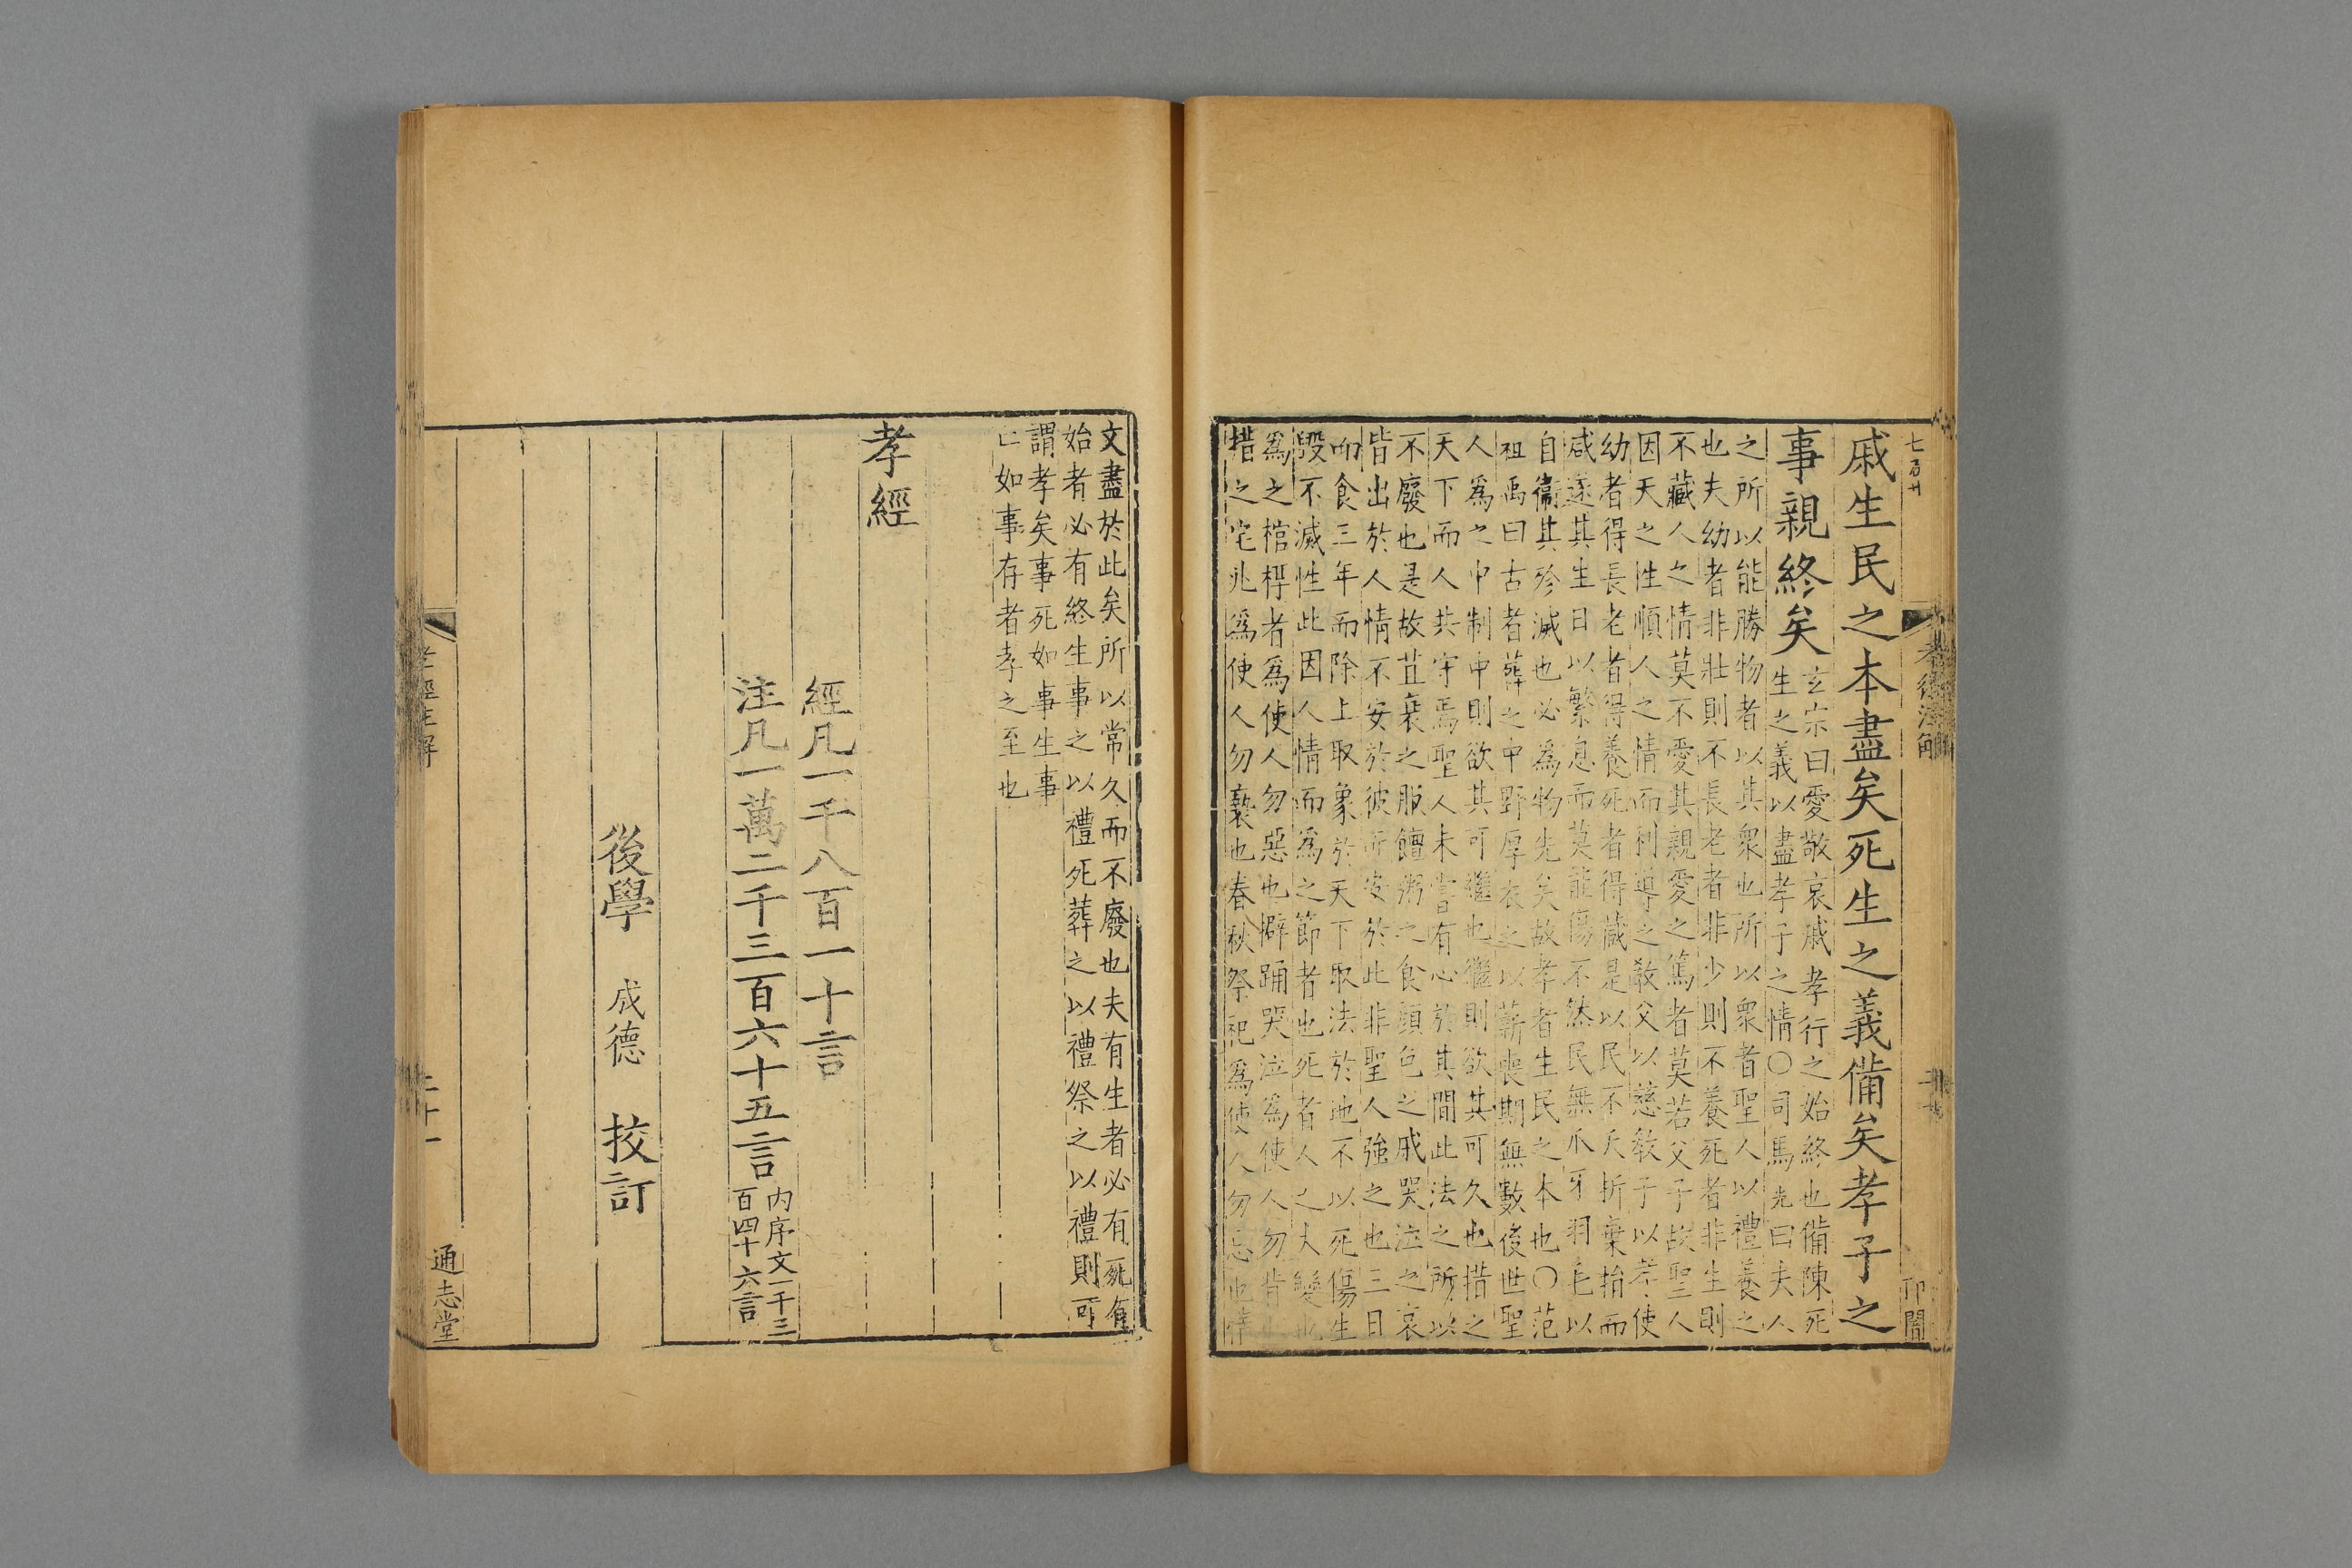 七百廿
戚生民之本盡矣死生之義備矣孝子之
事親終矣
玄宗曰愛敬哀戚孝行之始終也備陳死
生之義以盡孝子之情〇司馬光曰夫人
之所以能勝物者以其衆也所以衆者聖人以禮養之
也夫幼者非壯則不長老者非少則不養死者非生則
不藏人之情莫不愛其親愛之篤者莫若父子故聖人
因天之性順人之情而利導之教父以慈教子以孝使
幼者得長老者得養死者得藏是以民不夭折棄捐而
咸遂其生日以繁息而莫能傷不然民無爪牙羽毛以
自衞其殄滅也必爲物先矣故孝者生民之本也〇范
祖禹曰古者葬之中野厚衣之以薪喪期無數後世聖
人爲之中制中則欲其可繼也繼則欲其可久也措之
天下而人共守焉聖人未嘗有心於其間此法之所以
不廢也是故苴衰之服饘粥之食顔色之戚哭泣之哀
皆出於人情不安於彼而安於此非聖人強之也三日
而食三年而除上取象於天下取法於地不以死傷生
毀不滅性此因人情而爲之節者也死者人之大變也
爲之棺椁者爲使人勿惡也擗踊哭泣爲使人勿背也
措之宅兆爲使人勿褻也春秋祭祀爲使人勿忘也情
文盡於此矣所以常久而不廢也夫有生者必有死有
始者必有終生事之以禮死葬之以禮祭之以禮則可
謂孝矣事死如事生事
亡如事存者孝之至也
孝經
經凡一千八百一十言
注凡一萬二千三百六十五言
内序文一千三
百四十六言
後學 成德 挍訂
孝經注解 二十一 通志堂